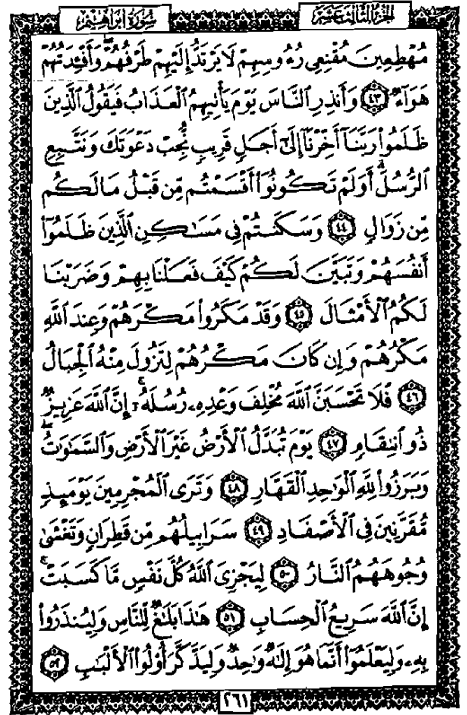 الجزء الثالث عشر
سورة إبراهيم
مُهْطِعِينَ مُقْنِعِي رُءُوسِهِمْ لَا يَرْتَدُّ إِلَيْهِمْ طَرْفُهُمْ وَأَفْـِٔدَتُهُمْ
هَوَآءٌ ٤٣ وَأَنذِرِ ٱلنَّاسَ يَوْمَ يَأْتِيهِمُ ٱلْعَذَابُ فَيَقُولُ ٱلَّذِينَ
ظَلَمُوا۟ رَبَّنَآ أَخِّرْنَآ إِلَىٰٓ أَجَلٍ قَرِيبٍ نُّجِبْ دَعْوَتَكَ وَنَتَّبِعِ
ٱلرُّسُلَ أَوَلَمْ تَكُونُوٓا۟ أَقْسَمْتُم مِّن قَبْلُ مَا لَكُم
مِّن زَوَالٍ ٤٤ وَسَكَنتُمْ فِى مَسَـٰكِنِ ٱلَّذِينَ ظَلَمُوٓا۟
أَنفُسَهُمْ وَتَبَيَّنَ لَكُمْ كَيْفَ فَعَلْنَا بِهِمْ وَضَرَبْنَا
لَكُمُ ٱلْأَمْثَالَ ٤٥ وَقَدْ مَكَرُوا۟ مَكْرَهُمْ وَعِندَ ٱللَّهِ
مَكْرُهُمْ وَإِن كَانَ مَكْرُهُمْ لِتَزُولَ مِنْهُ ٱلْجِبَالُ
٤٦ فَلَا تَحْسَبَنَّ ٱللَّهَ مُخْلِفَ وَعْدِهِۦ رُسُلَهُۥٓ إِنَّ ٱللَّهَ عَزِيزٌ
ذُو ٱنتِقَامٍ ٤٧ يَوْمَ تُبَدَّلُ ٱلْأَرْضُ غَيْرَ ٱلْأَرْضِ وَٱلسَّمَـٰوَٰتُ
وَبَرَزُوا۟ لِلَّهِ ٱلْوَٰحِدِ ٱلْقَهَّارِ ٤٨ وَتَرَى ٱلْمُجْرِمِينَ يَوْمَئِذٍ
مُّقَرَّنِينَ فِى ٱلْأَصْفَادِ ٤٩ سَرَابِيلُهُم مِّن قَطِرَانٍ وَتَغْشَىٰ
وُجُوهَهُمُ ٱلنَّارُ ٥٠ لِيَجْزِىَ ٱللَّهُ كُلَّ نَفْسٍ مَّا كَسَبَتْ
إِنَّ ٱللَّهَ سَرِيعُ ٱلْحِسَابِ ٥١ هَـٰذَا بَلَـٰغٌ لِّلنَّاسِ وَلِيُنذَرُوا۟
بِهِۦ وَلِيَعْلَمُوٓا۟ أَنَّمَا هُوَ إِلَـٰهٌ وَٰحِدٌ وَلِيَذَّكَّرَ أُو۟لُوا۟ ٱلْأَلْبَـٰبِ ٥٢
٢٦١